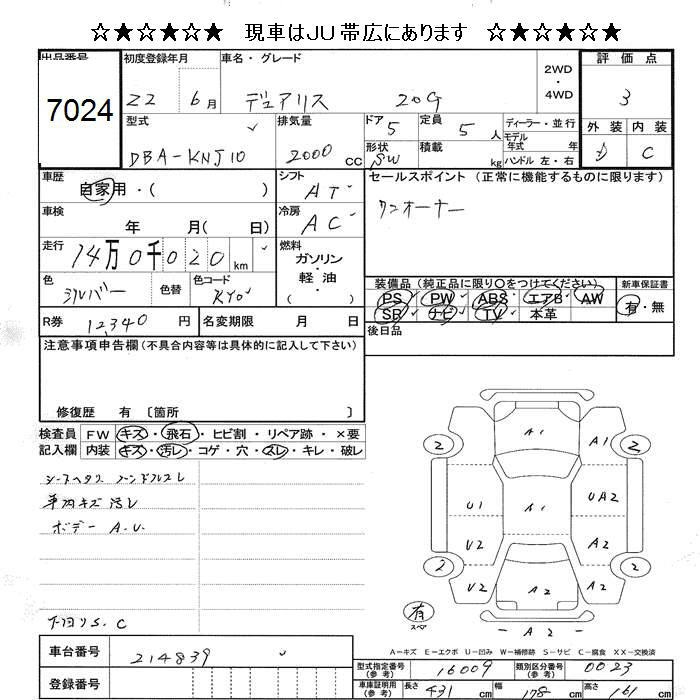 ☆★☆★☆★ 現車はJU帯広にあります ☆★☆★☆★
出品番号 初度登録年月 車名・グレード 2WD・4WD 評価点
7024 22 6月 デュアリス 20G 3
型式 排気量 ドア 5 定員 5人 ディーラー・並行 外装 内装
DBA-KNJ10 2000cc 形状 SW 積載 kg モデル年式 年 ハンドル 左・右 D C
車歴 自家用・( ) シフト AT セールスポイント (正常に機能するものに限ります)
車検 年 月( 日) 冷房 AC ワンオーナー
走行 14万0千020km 燃料 ガソリン・軽油 ( )
色 シルバー 色替 色コード KY0
装備品 (純正品に限り○をつけてください) 新車保証書
PS PW ABS エアB AW 有・無
SR ナビ TV 本革
R券 12,340円 名変期限 月 日 後日品
注意事項申告欄 (不具合内容等は具体的に記入して下さい)
修復歴 有 〔箇所 〕
検査員記入欄 FW キズ・飛石・ヒビ割・リペア跡・×要
内装 キズ・汚レ・コゲ・穴・スレ・キレ・破レ
車内キズ汚レ
ボデー A.U.
下回りS.C
A1
2 A1 2
U1 A1 UA2
U2 A2
2 U2 A2 A2 2
有 スペア
-A2-
A-キズ E-エクボ U-凹み W-補修跡 S-サビ C-腐食 XX-交換済
車台番号 214839
登録番号
型式指定番号(参考) 16009 類別区分番号(参考) 0023
車庫証明用(参考) 長さ 431cm 幅 178cm 高さ 161cm